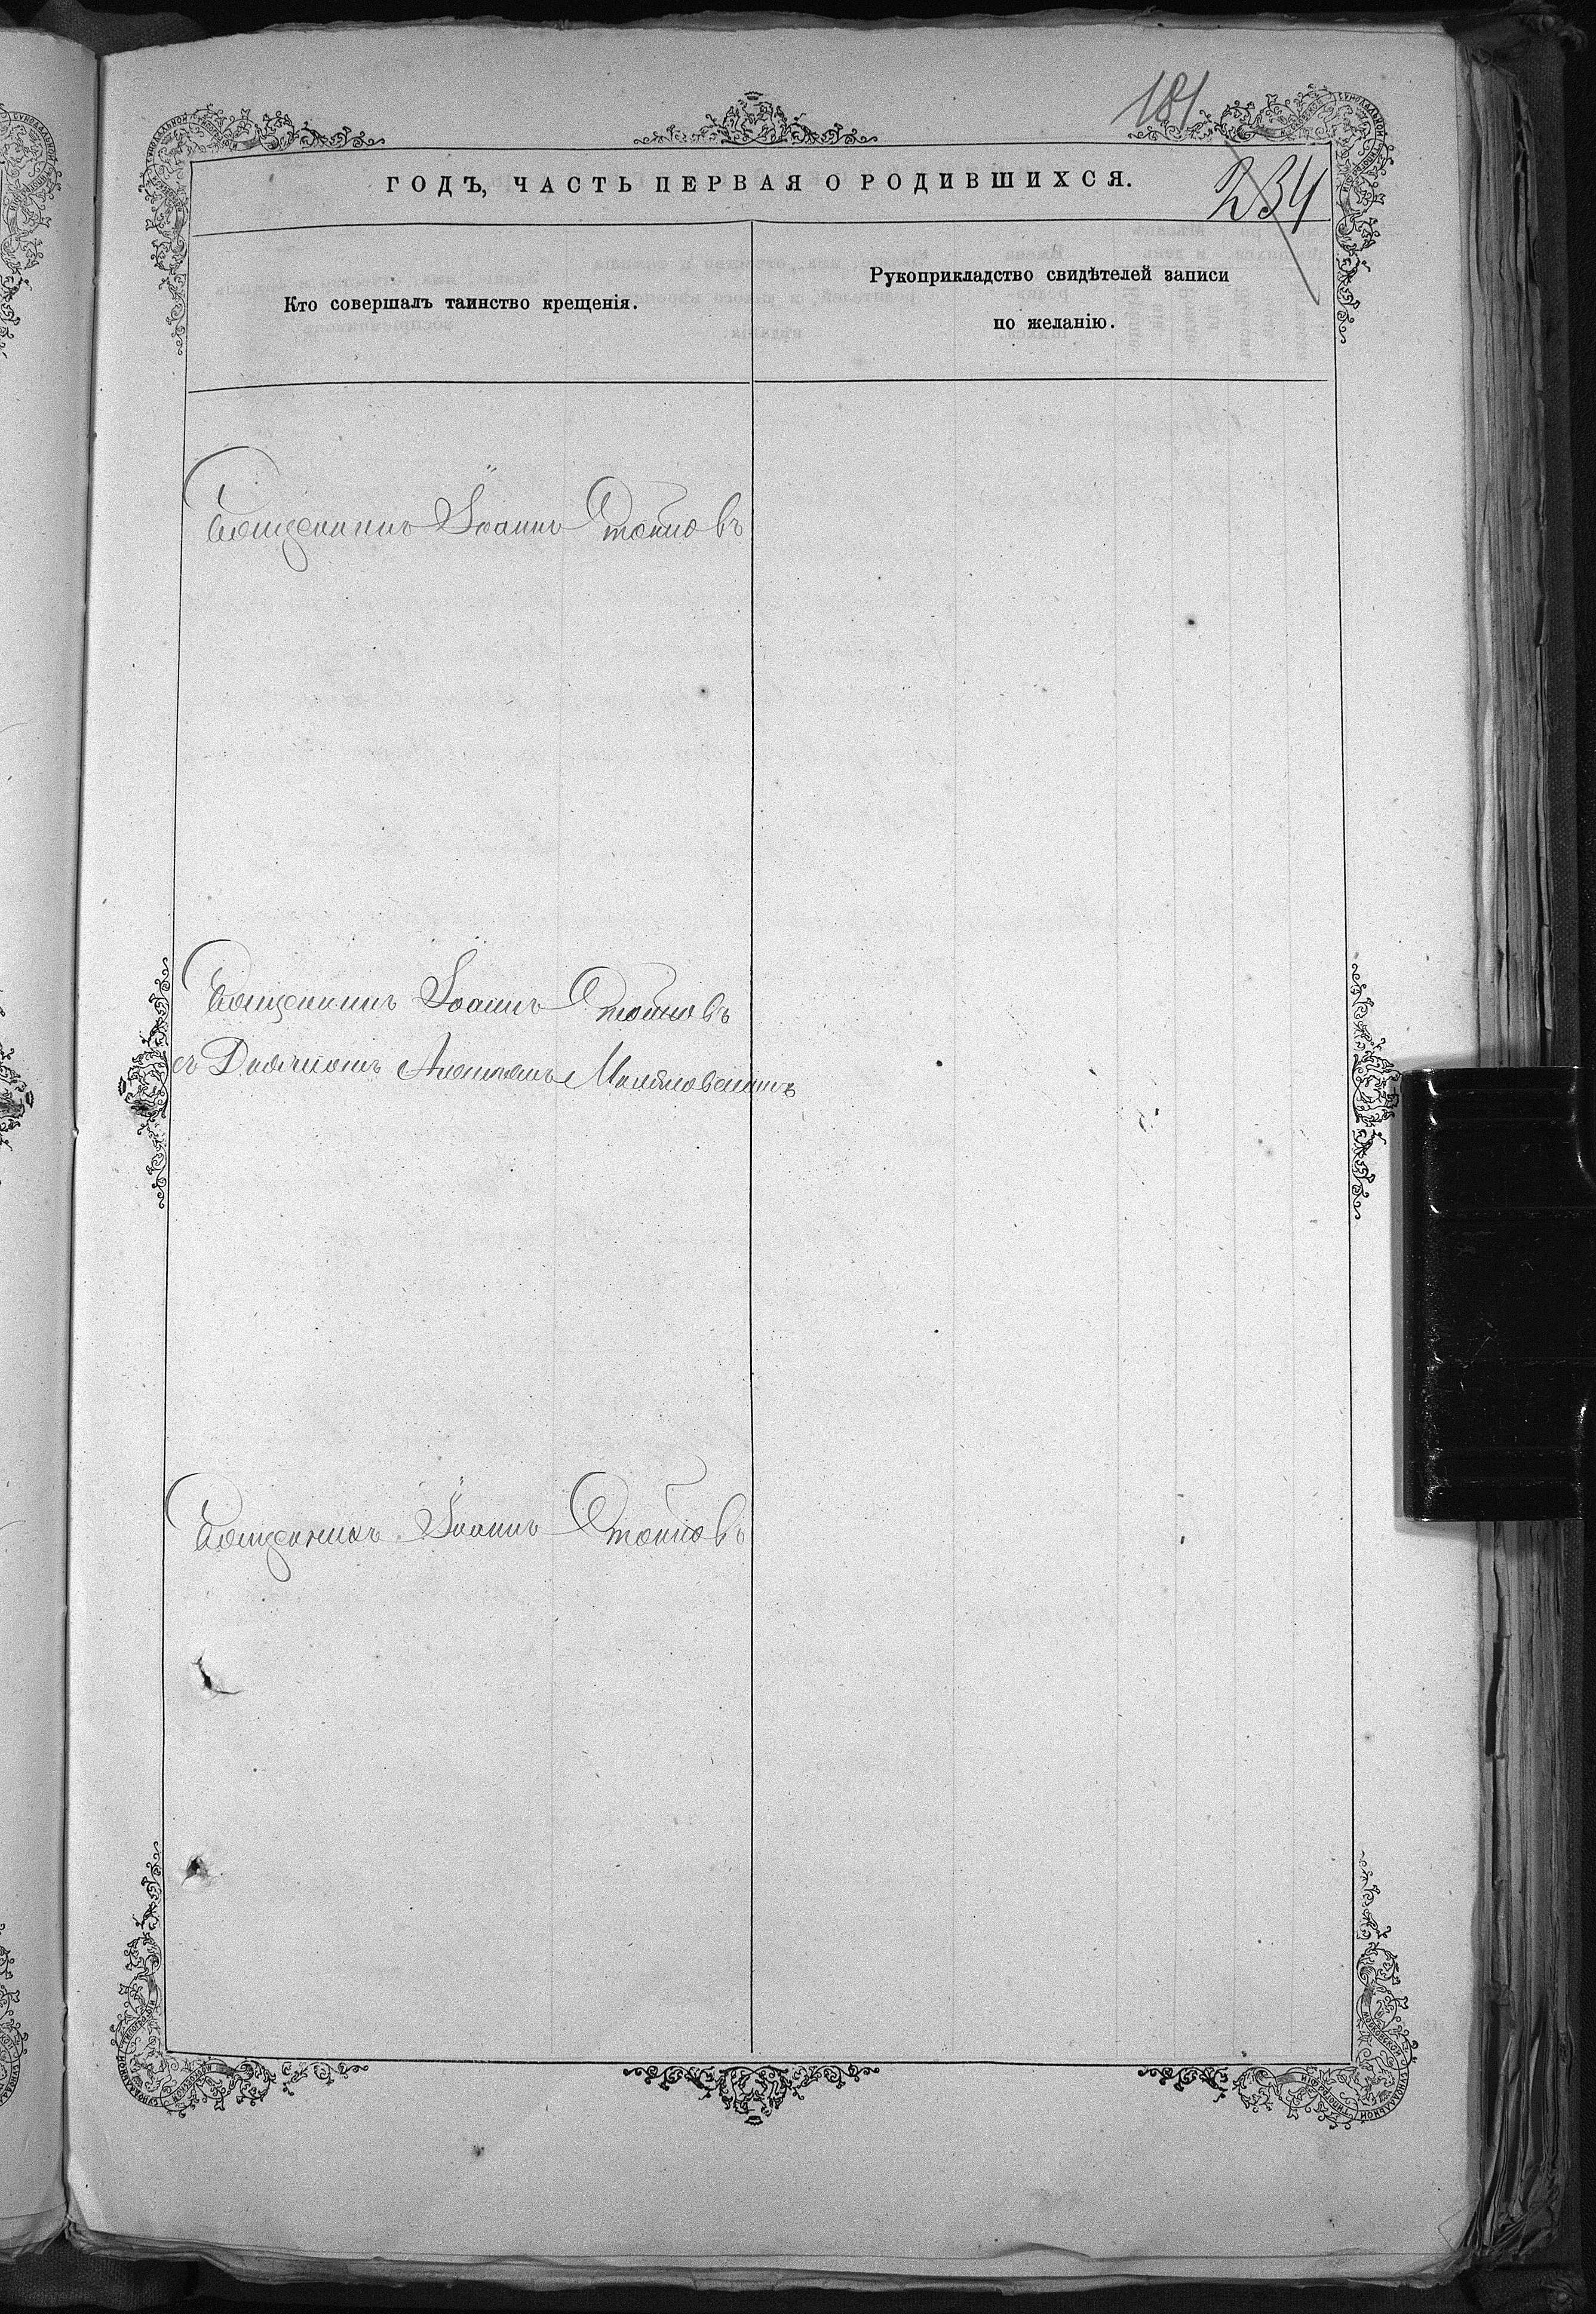 181
ГОДЪ, ЧАСТЬ ПЕРВАЯ О РОДИВШИХСЯ.
234
Кто совершалъ таинство крещенія.
Рукоприкладство свидѣтелей записи
по желанію.
Священникъ Іоаннъ Стойновъ
Священникъ Іоаннъ Стойновъ
съ Дьячкомъ
Священникъ Іоаннъ Стойновъ